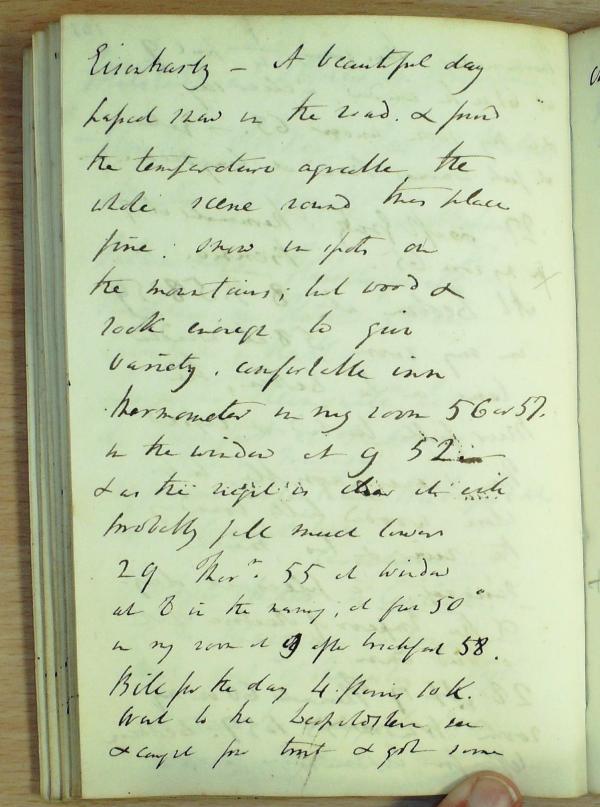 A beautiful day
snow in the road. & found
the temperature agreable the
whole scene round this place
fine: snow in spots on
the mountains; but wood &
rock enough to give
variety. comfortable inn
thermometer in my room 56 or 57.
in the window at 9 52
& as the night is clear it will
probably fall much lower
29 Ther.r 55 at window
at 8 in the morning; at five 50°
in my room at 9 after breakfast 58.
Bill for the day 4 florins 10 K.
Went to the
& caught four trout & got some